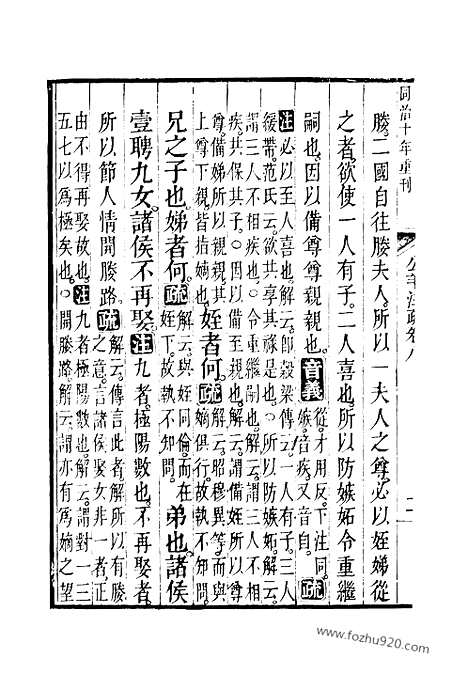 同治十年重刊
公羊注疏卷八
媵。二國自往媵夫人。所以一夫人之尊。必以姪娣從
之者。欲使一人有子。二人喜也。所以防嫉妬。令重繼
嗣也。因以備尊尊親親也。音義從。才用反。下注同。嫉音疾。又音自。疏
注必以至人喜也。解云。即穀梁傳云。一人有子。三人
緩帶。范氏云。欲共享其祿是也。○所以防嫉妬。解云。
謂三人不相疾也。○令重繼嗣也。解云。謂三人不相
疾。共保其子。○因以備至親也。解云。謂備姪所以尊
尊。備娣所以親親也。解云。昭穆異等。而與
上尊下親。皆指嫡也。姪者何。疏嫡俱行。故執不知問。
兄之子也。娣者何。疏解云。與姪同倫。而在姪下。故執不知問。弟也。諸侯
壹聘九女。諸侯不再娶。注九者。極陽數也。不再娶者。
所以節人情。開媵路。疏解云。傳言此者。解所以有媵之意。言諸侯娶女非一者。正
由不得再娶故也。注九者極陽數也。解云。謂對一三
五七以爲極矣也。○開媵路。解云。謂亦有爲嫡之望
www.fozhu920.com